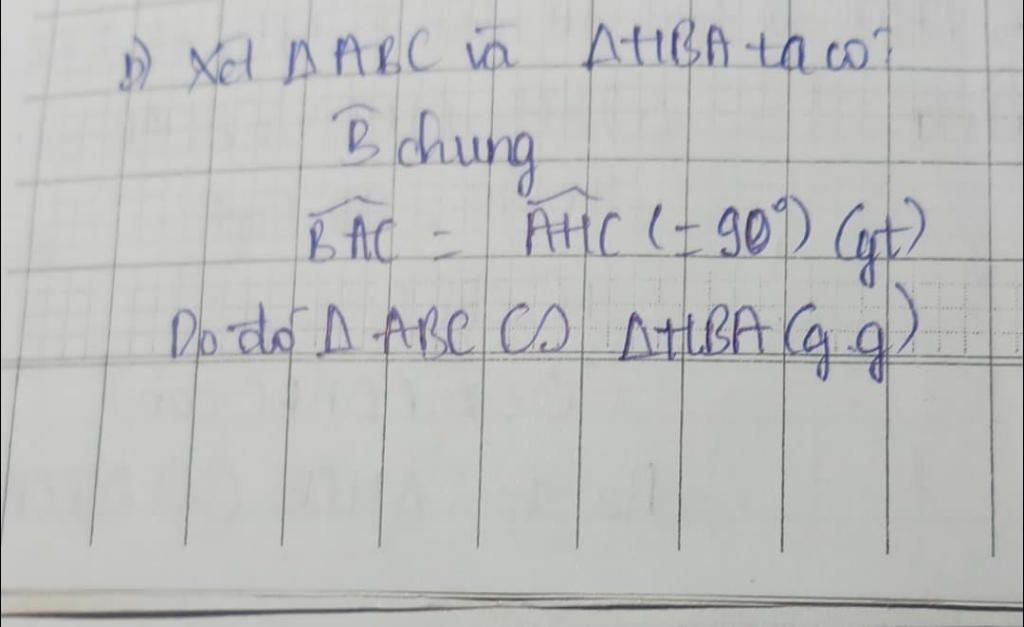 b) Xét Δ ABC và ΔHBA ta có:
B̂ chung
B͡AC = A͡HC (= 90°) (gt)
Do đó Δ ABC ∽ ΔHBA (g.g)